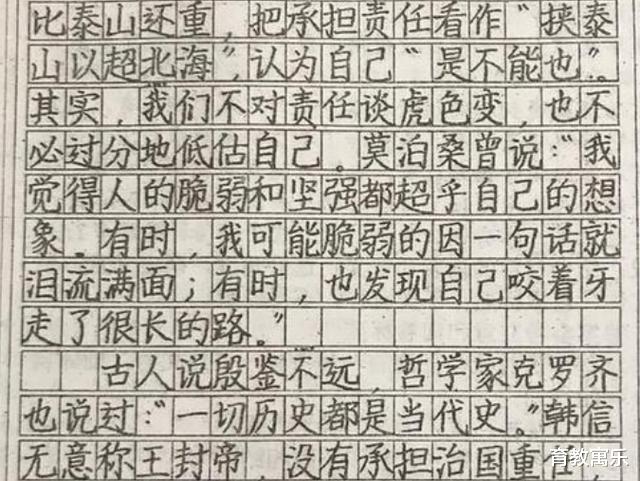 比泰山还重，把承担责任看作“挟泰
山以超北海”，认为自己“是不能也”。
其实，我们不对责任谈虎色变，也不
必过分地低估自己。莫泊桑曾说：“我
觉得人的脆弱和坚强都超乎自己的想
象。有时，我可能脆弱的因一句话就
泪流满面；有时，也发现自己咬着牙
走了很长的路。”
古人说殷鉴不远，哲学家克罗齐
也说过：“一切历史都是当代史。”韩信
无意称王封帝，没有承担治国重任，
育教寓乐